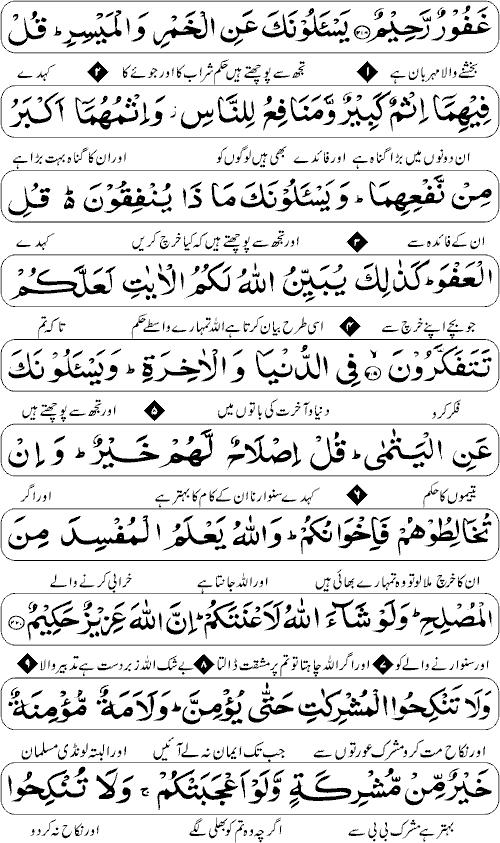 غَفُوْرٌ رَّحِيْمٌ ﴿۲۱۸﴾ يَسْـَٔلُوْنَكَ عَنِ الْخَمْرِ وَالْمَيْسِرِ ؕ قُلْ
بخشنے والا مہربان ہے ۱ تجھ سے پوچھتے ہیں حکم شراب کا اور جوئے کا ۲ کہدے
فِيْهِمَآ اِثْمٌ كَبِيْرٌ وَّمَنَافِعُ لِلنَّاسِ ز وَاِثْمُهُمَآ اَكْبَرُ
ان دونوں میں بڑا گناہ ہے اور فائدے بھی ہیں لوگوں کو اور ان کا گناہ بہت بڑا ہے
مِنْ نَّفْعِهِمَا ؕ وَيَسْـَٔلُوْنَكَ مَا ذَا يُنْفِقُوْنَ ۵ؕ قُلِ
ان کے فائدہ سے ۳ اور تجھ سے پوچھتے ہیں کہ کیا خرچ کریں کہدے
الْعَفْوَ ؕ كَذٰلِكَ يُبَيِّنُ اللّٰهُ لَكُمُ الْاٰيٰتِ لَعَلَّكُمْ
جو بچے اپنے خرچ سے ۴ اسی طرح بیان کرتا ہے اللہ تمہارے واسطے حکم تاکہ تم
تَتَفَكَّرُوْنَ ﴿۲۱۹﴾ فِي الدُّنْيَا وَالْاٰخِرَةِ ؕ وَيَسْـَٔلُوْنَكَ
فکر کرو دنیا و آخرت کی باتوں میں ۵ اور تجھ سے پوچھتے ہیں
عَنِ الْيَتٰمٰى ؕ قُلْ اِصْلَاحٌ لَّهُمْ خَيْرٌ ؕ وَاِنْ
یتیموں کا حکم ۶ کہدے سنوارنا ان کے کام کا بہتر ہے اور اگر
تُخَالِطُوْهُمْ فَاِخْوَانُكُمْ ؕ وَاللّٰهُ يَعْلَمُ الْمُفْسِدَ مِنَ
ان کا خرچ ملا لو تو وہ تمہارے بھائی ہیں اور اللہ جانتا ہے خرابی کرنے والے
الْمُصْلِحِ ؕ وَلَوْ شَآءَ اللّٰهُ لَاَعْنَتَكُمْ ؕ اِنَّ اللّٰهَ عَزِيْزٌ حَكِيْمٌ ﴿۲۲۰﴾
اور سنوارنے والے کو ۷ اور اگر اللہ چاہتا تو تم پر مشقت ڈالتا ۸ بے شک اللہ زبردست ہے تدبیر والا ۹
وَلَا تَنْكِحُوا الْمُشْرِكٰتِ حَتّٰى يُؤْمِنَّ ؕ وَلَاَمَةٌ مُّؤْمِنَةٌ
اور نکاح مت کرو مشرک عورتوں سے جب تک ایمان نہ لے آئیں اور البتہ لونڈی مسلمان
خَيْرٌ مِّنْ مُّشْرِكَةٍ وَّلَوْ اَعْجَبَتْكُمْ ۚ وَلَا تُنْكِحُوا
بہتر ہے مشرک بی بی سے اگرچہ وہ تم کو بھلی لگے اور نکاح نہ کر دو